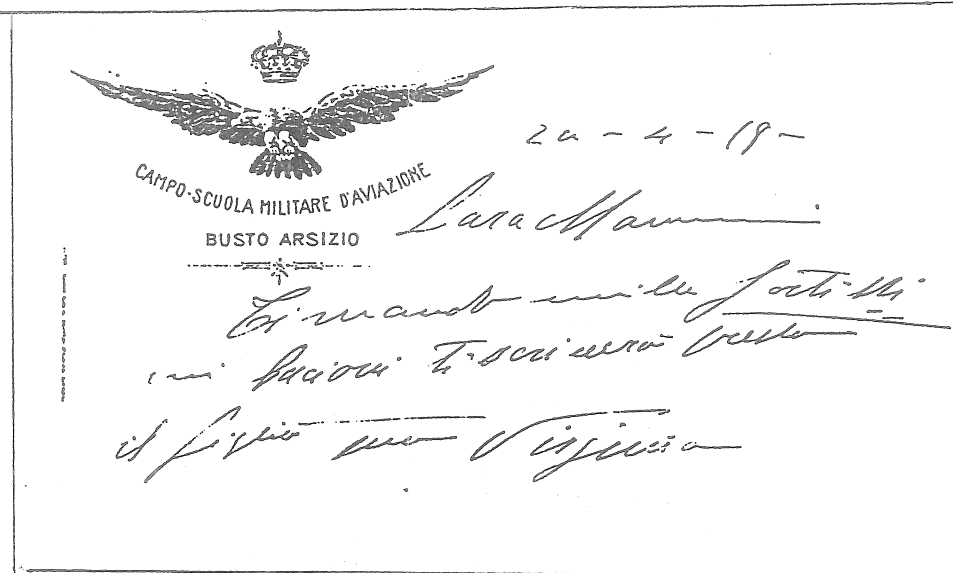 CAMPO-SCUOLA MILITARE D'AVIAZIONE
BUSTO ARSIZIO
20 - 4 - 19 -
Cara Mamma
Ti mando mille
bacioni ti scriverò presto
il figlio tuo